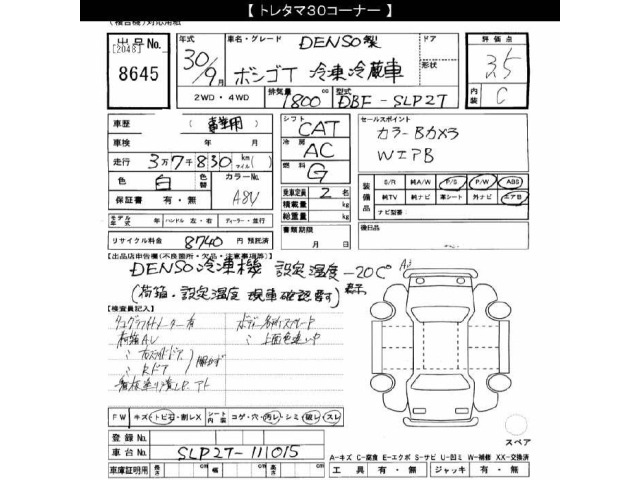 【 トレタマ30コーナー 】
出品No. 年式 車名・グレード DENSO製 ドア 評価点
[2048] 30/9月 ボンゴT 冷凍冷蔵車 形状 3.5
8645 2WD・4WD 排気量 1800cc 型式 DBF-SLP2T 内装 C
車歴 (事業用) シフト CAT セールスポイント
車検 年 月 冷房 AC カラーBカメラ
走行 3万7千830 km マイル 燃料 G WエアB
色 白 色替 カラーNo. A8V 乗車定員 2 名 装備品 S/R 純A/W P/S P/W ABS
保証書 有・無 積載量 kg 純TV 純ナビ 革シート 外ナビ エアB
総重量 kg ナビ型番
モデル年式 年 ハンドル 左・右 ディーラー・並行 書類期限 後日品
リサイクル料金 8740 円 預託済 月 日
【出品店申告欄(不良箇所・欠品・注意事項等)】
DENSO冷凍機 設定温度 -20C°
(荷箱・設定温度 現車確認
【検査員記入】
FW キズ・トビ石・割レX シート内装 コゲ・穴・汚レ・シミ・破レ・スレ
スペア
登録No.
車台No. SLP2T-111015 A=キズ C=腐食 E=エクボ S=サビ U=凹ミ W=補修 XX=交換済
車庫証明用 長さ cm 幅 cm 高さ cm 工具 有・無 ジャッキ 有・無